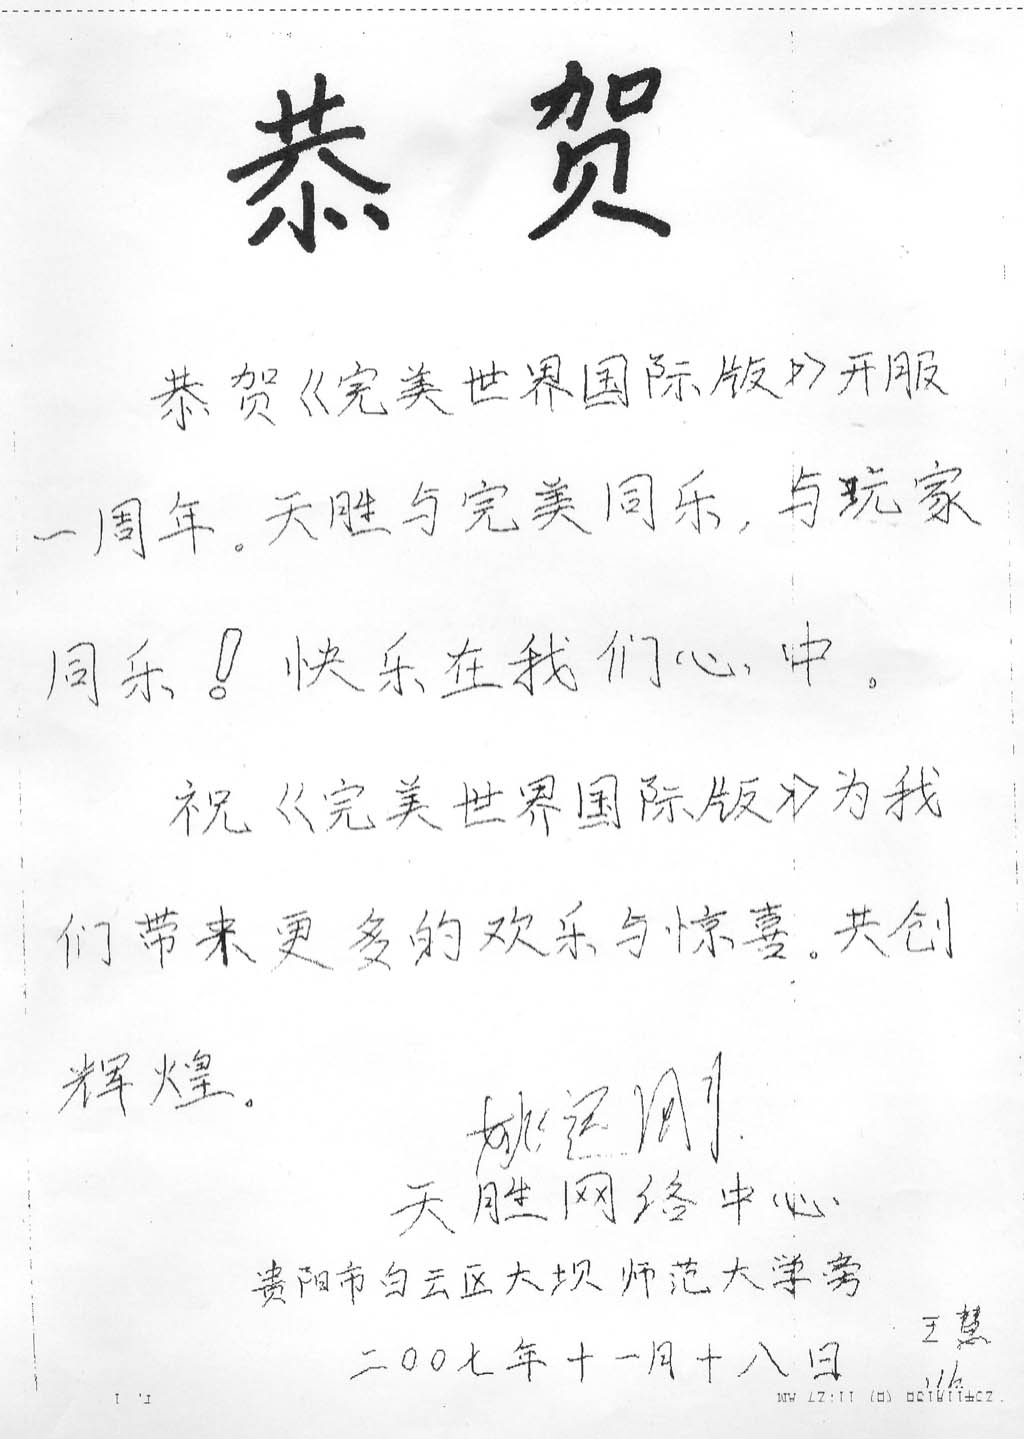 恭贺
恭贺《完美世界国际版》开服
一周年。天胜与完美同乐,与玩家
同乐!快乐在我们心中。
祝《完美世界国际版》为我
们带来更多的欢乐与惊喜。共创
辉煌。
姚远刚
天胜网络中心
贵阳市白云区大坝师范大学旁
王慧
二00七年十一月十八日